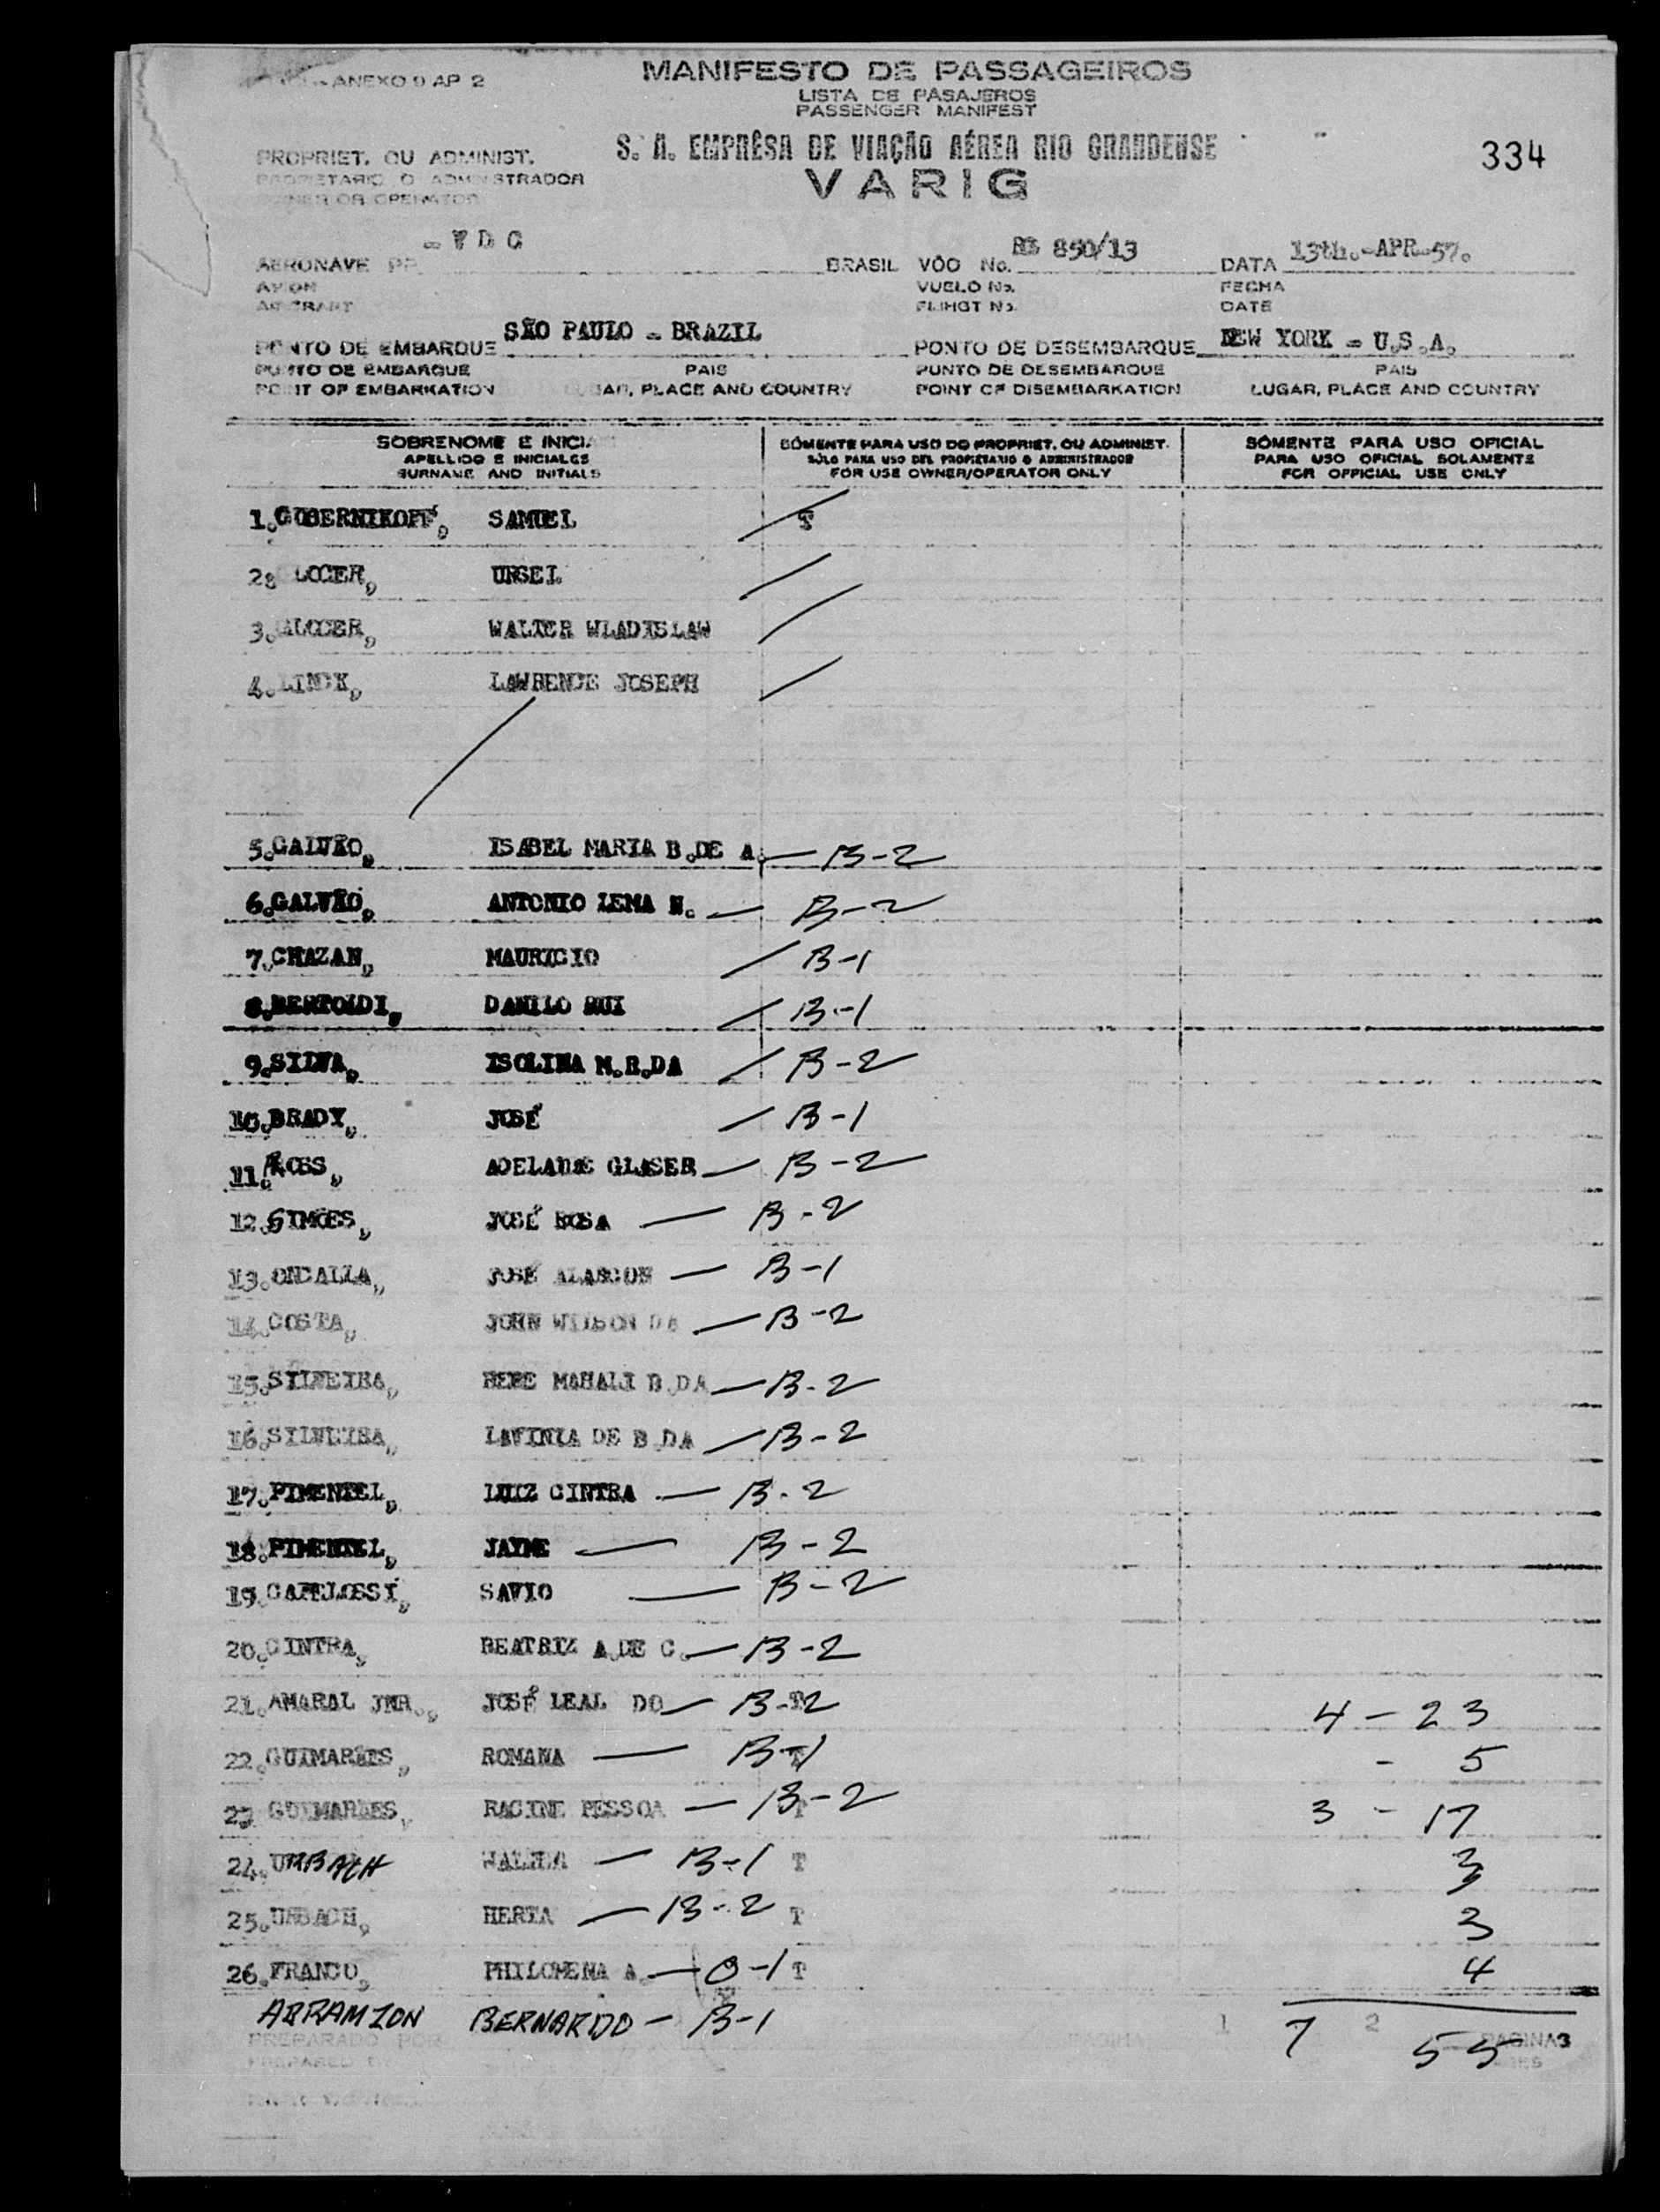 ANEXO 9 AP 2
MANIFESTO DE PASSAGEIROS
LISTA DE PASAJEROS
PASSENGER MANIFEST
S. A. EMPRÊSA DE VIAÇÃO AÉREA RIO GRANDENSE
334
VARIG
PROPRIET. OU ADMINIST.
PROPIETARIO O ADMINISTRADOR
OWNER OR OPERATOR
AERONAVE PP - V D C BRASIL VÔO No. RG 850/13 DATA 13th.-APR-57.
AVION VUELO No. FECHA
AIRCRAFT FLIHGT No. DATE
PONTO DE EMBARQUE SÃO PAULO - BRAZIL PONTO DE DESEMBARQUE NEW YORK - U.S.A.
PUNTO DE EMBARQUE PAIS PUNTO DE DESEMBARQUE PAIS
POINT OF EMBARKATION LUGAR, PLACE AND COUNTRY POINT OF DISEMBARKATION LUGAR, PLACE AND COUNTRY
SOBRENOME E INICI SÓMENTE PARA USO DO PROPRIET. OU ADMINIST. SÓMENTE PARA USO OFICIAL
APELLIDO E INICIALES SÓLO PARA USO DEL PROPIETARIO O ADMINISTRADOR PARA USO OFICIAL SOLAMENTE
SURNAME AND INITIALS FOR USE OWNER/OPERATOR ONLY FOR OFFICIAL USE ONLY
1. GUBERNIKOFF, SAMUEL / T
2. LOCER, URSEL /
3. GLOCER, WALTER WLADISLAW /
4. LINCK, LAWRENCE JOSEPH /
5. GALVÃO, ISABEL MARIA B.DE A. — B-2
6. GALVÃO, ANTONIO LEMA N. — B-2
7. CHAZAN, MAURICIO / B-1
8. BERTOLDI, DANILO RUI / B-1
9. SILVA, ISOLINA M.R.DA / B-2
10. BRADY, JOSÉ — B-1
11. ROSS, ADELAIDE GLASER — B-2
12. SIMÕES, JOSÉ ROSA — B-2
13. ONDALLA, JOSÉ ALARCON — B-1
14. COSTA, JOHN WILSON DA — B-2
15. SILVEIRA, HEBE MAHALI B.DA — B-2
16. SILVEIRA, LAVINIA DE B.DA — B-2
17. PIMENTEL, LUIZ CINTRA — B-2
18. PIMENTEL, JAYME — B-2
19. CAPELOSSI, SAVIO — B-2
20. CINTRA, BEATRIZ A.DE C. — B-2
21. AMARAL JNR., JOSÉ LEAL DO — B-2 T 4 - 23
22. GUIMARÃES, ROMANA — B-1 T - 5
23 GUIMARÃES, RACINE PESSOA — B-2 T 3 - 17
24. URBACH — B-1 T 3
25. URBACH, HERTA — B-2 T 3
26. FRANCO, PHILOMENA A. — O-1 T 4
ABRAMZON BERNARDO — B-1
PREPARADO POR PAGINA 1 7 2 55 PAGINA3
PREPARED BY